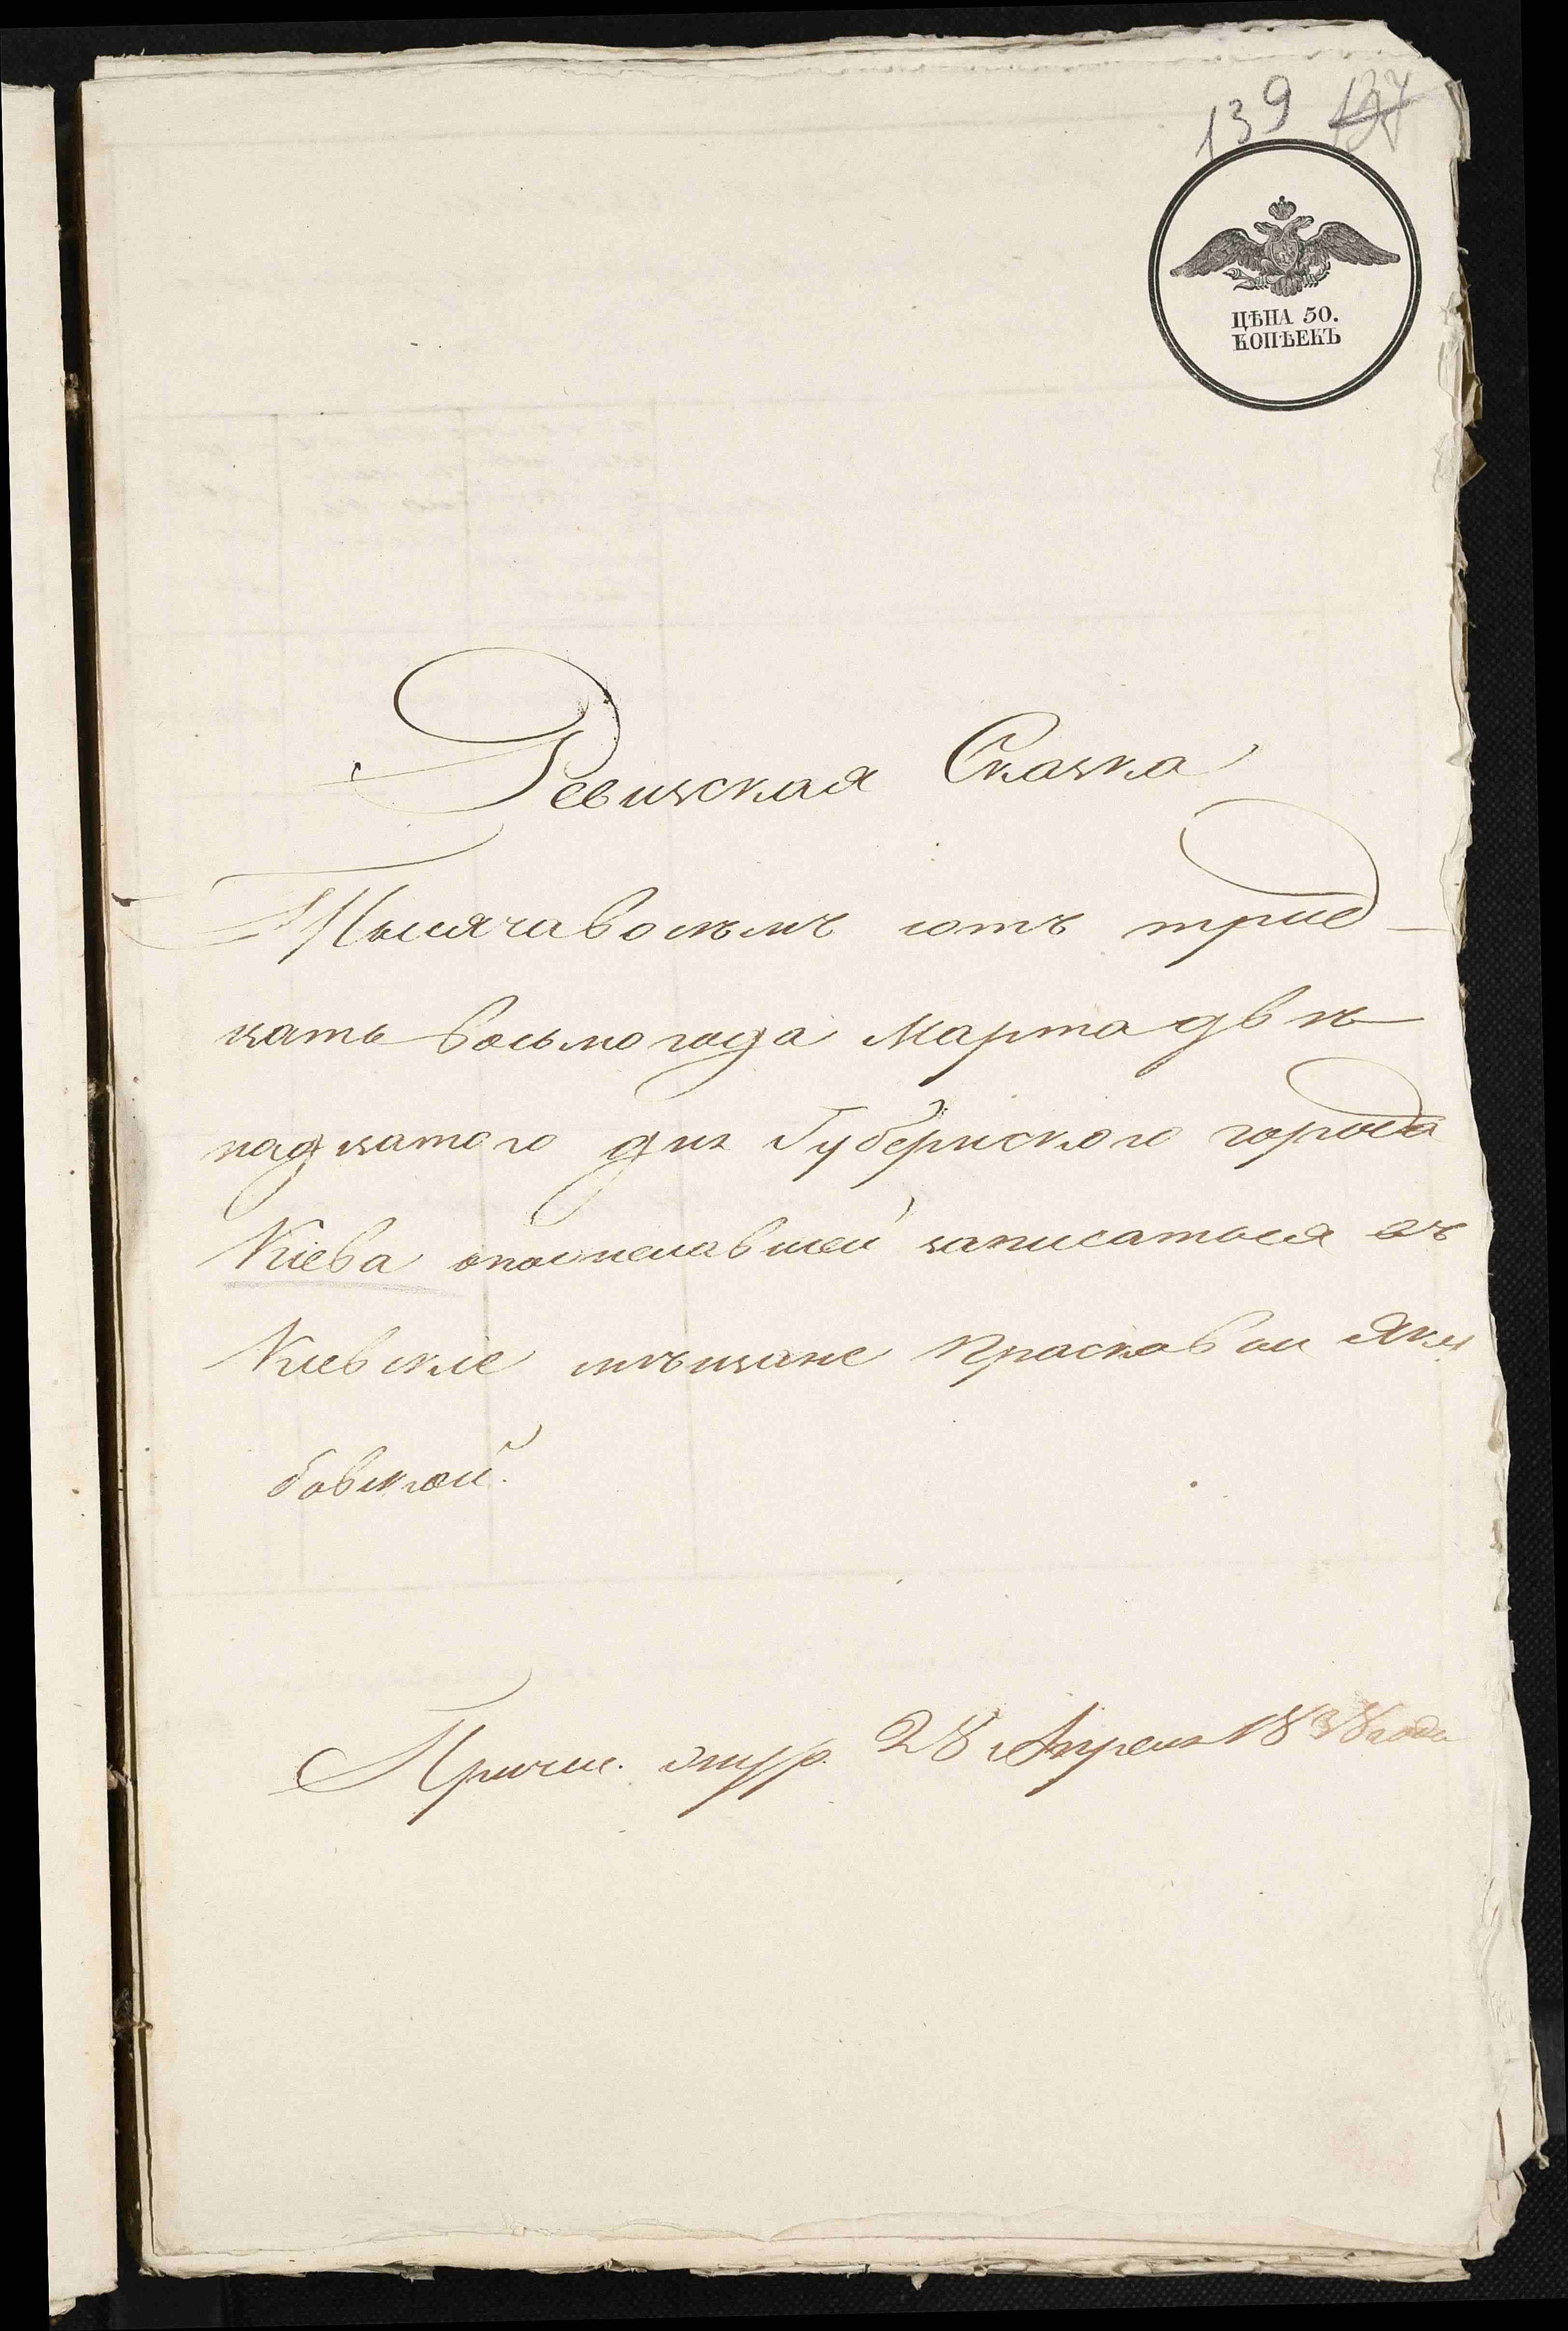 139 137
ЦѢНА 50.
КОПѢЕКЪ
Ревизская Сказка
Тысяча восемъ сотъ трид-
цать восьмогода Марта двѣ
надцатого дня Губернского города
Кіева опожелавшей записатьса въ
Киевскіе мѣщане Прасковіи Яку
бовской.
Причис. 28 Апреля 1838 года